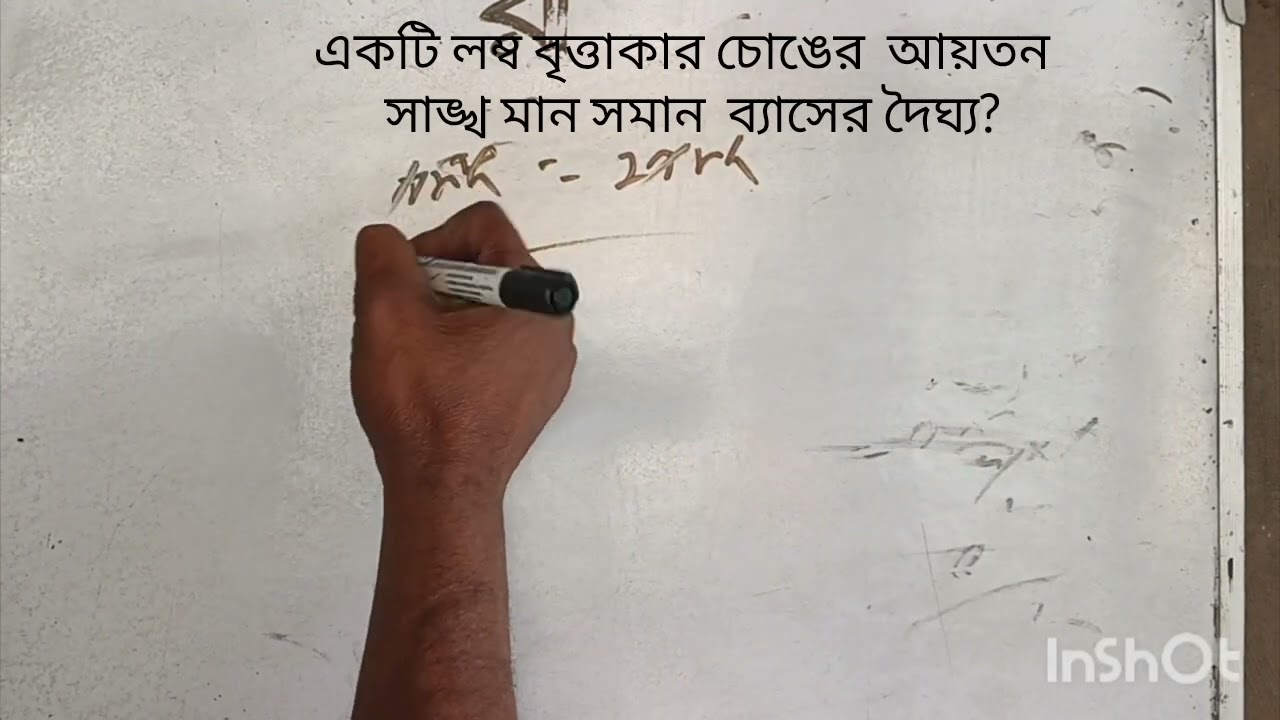 একটি লম্ব বৃত্তাকার চোঙের আয়তন
সাঙ্খ মান সমান ব্যাসের দৈঘ্য?
πr²h = 2πrh
InShOt